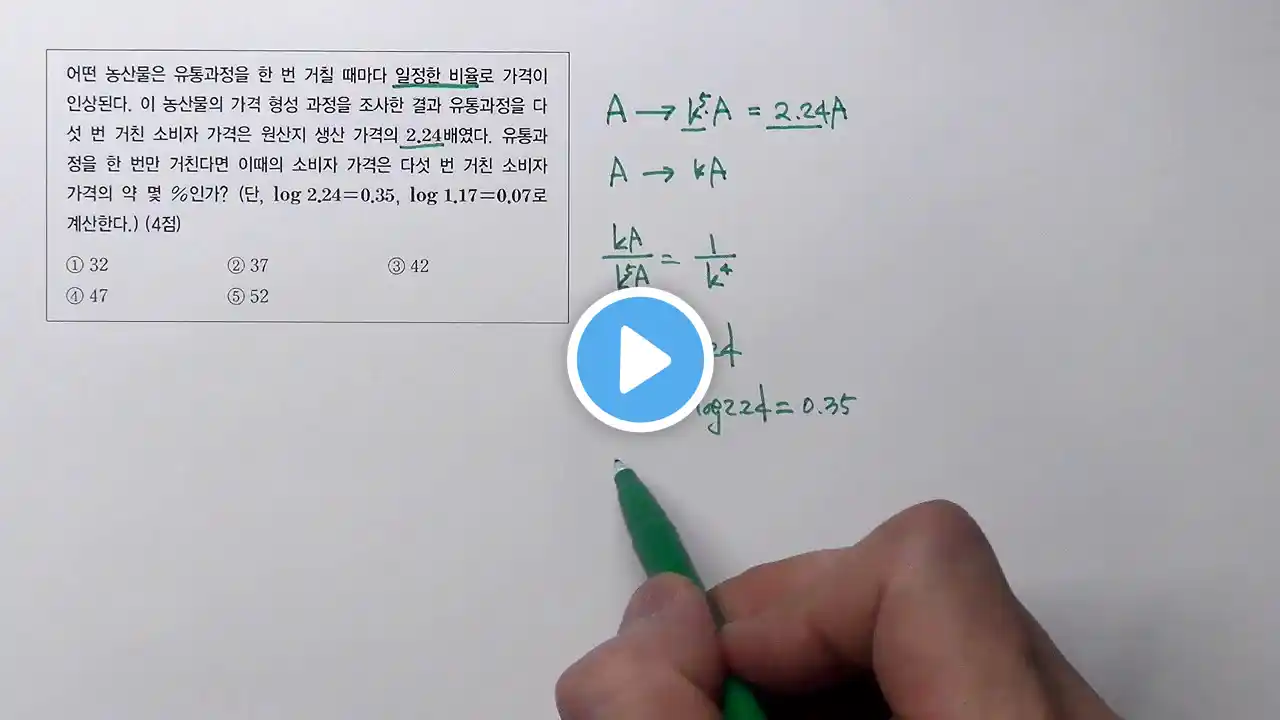 어떤 농산물은 유통과정을 한 번 거칠 때마다 일정한 비율로 가격이
인상된다. 이 농산물의 가격 형성 과정을 조사한 결과 유통과정을 다
섯 번 거친 소비자 가격은 원산지 생산 가격의 2.24배였다. 유통과
정을 한 번만 거친다면 이때의 소비자 가격은 다섯 번 거친 소비자
가격의 약 몇 %인가? (단, log 2.24=0.35, log 1.17=0.07로
계산한다.) (4점)
① 32 ② 37 ③ 42
④ 47 ⑤ 52
A → k⁵A = 2.24A
A → kA
kA/k⁵A = 1/k⁴
24
log224=0.35